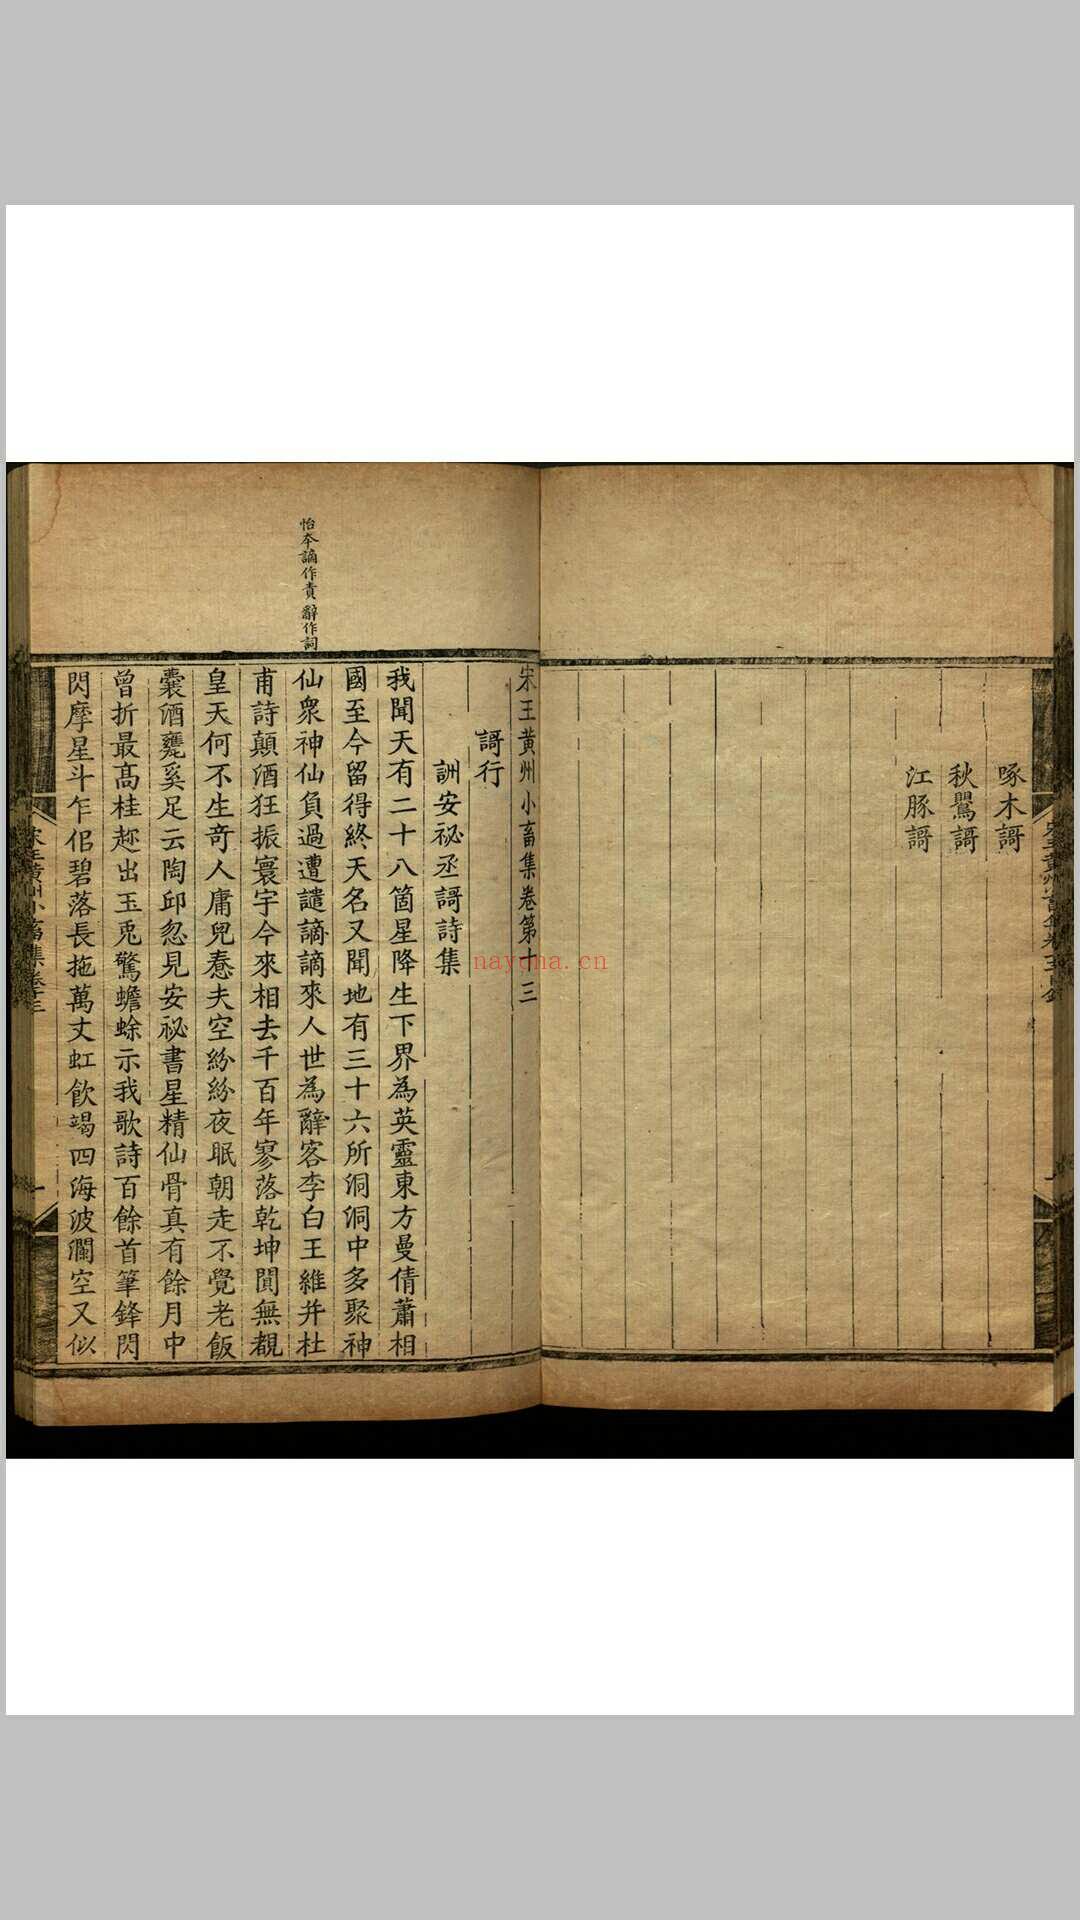 啄木謌
秋鷪謌
江豚謌
宋王黄州小畜集卷第十三
謌行
詶安祕丞謌詩集
我聞天有二十八箇星降生下界為英靈東方曼倩蕭相
國至今留得終天名又聞地有三十六所洞洞中多聚神
仙衆神仙負過遭譴謫謫來人世為辭客李白王維并杜
甫詩顛酒狂振寰宇今來相去千百年寥落乾坤閴無覩
皇天何不生竒人庸兒惷夫空紛紛夜眠朝走不覺老飯
囊酒甕奚足云陶邱忽見安祕書星精仙骨真有餘月中
曾折最高桂趂出玉兎驚蟾蜍示我歌詩百餘首筆鋒閃
閃摩星斗乍佀碧落長拖萬丈虹飲竭四海波瀾空又似
怡本謫作責 辭作詞
宋王黄州小畜集卷十三
一
nayona.cn